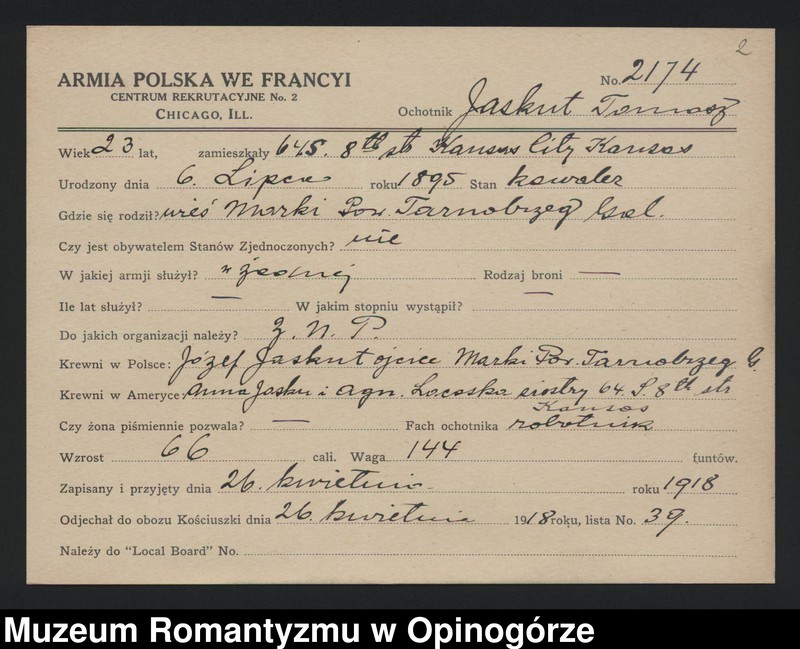 2
ARMIA POLSKA WE FRANCYI
CENTRUM REKRUTACYJNE No. 2
CHICAGO, ILL.
No. 2174
Ochotnik Jaskut Tomasz
Wiek 23 lat, zamieszkały 64 S. 8th st Kansas City Kansas
Urodzony dnia 6. Lipca roku 1895 Stan kawaler
Gdzie się rodził? wieś Marki Pow. Tarnobrzeg Gal.
Czy jest obywatelem Stanów Zjednoczonych? nie
W jakiej armji służył? w żadnej Rodzaj broni —
Ile lat służył? — W jakim stopniu wystąpił? —
Do jakich organizacji należy? Z. N. P.
Krewni w Polsce: Józef Jaskut ojciec Marki Pow. Tarnobrzeg G.
Krewni w Ameryce Anna Jasku i Agn. siostry 64. S. 8th str
Kansas
Czy żona piśmiennie pozwala? — Fach ochotnika robotnik
Wzrost 66 cali. Waga 144 funtów.
Zapisany i przyjęty dnia 26. kwietnia roku 1918
Odjechał do obozu Kościuszki dnia 26. kwietnia 1918 roku, lista No. 39.
Należy do "Local Board" No.
Muzeum Romantyzmu w Opinogórze